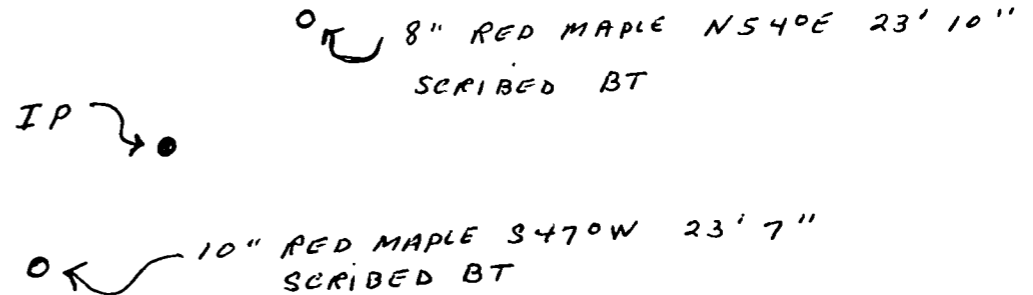 8" RED MAPLE N54°E 23' 10"
SCRIBED BT
IP
10" RED MAPLE S47°W 23' 7"
SCRIBED BT